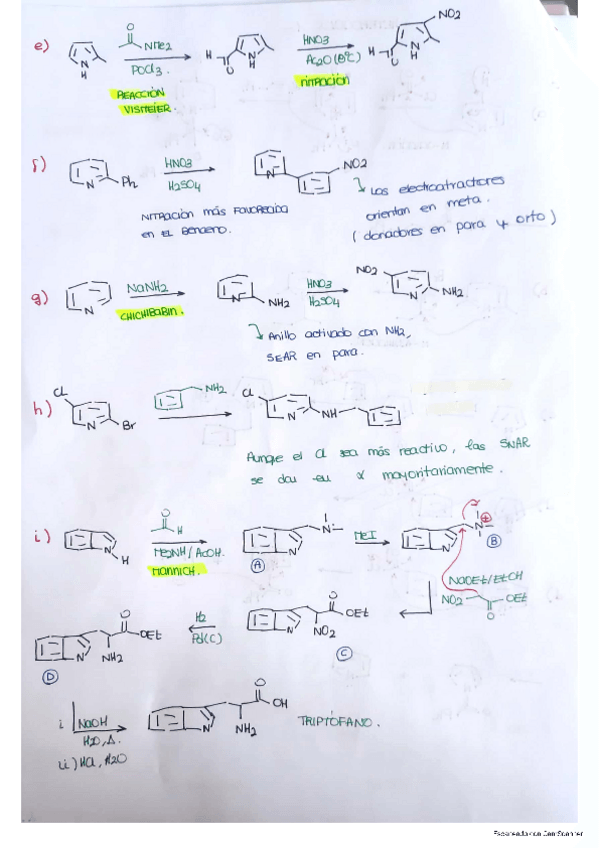 e) NMe2 HNO3 NO2
POCl3. Ac2O (0ºC)
REACCIÓN VISMEIER.
NITRACIÓN
f) HNO3 NO2
Ph H2SO4
NITRACIÓN MÁS FAVORECIDA
EN EL BENCENO.
Los electroatractores
orientan en meta.
(donadores en para y orto)
g) NaNH2 HNO3 NO2
CHICHIBABIN. NH2 H2SO4 NH2
Anillo activado con NH2,
SEAR en para.
h) Cl NH2 Cl
Br NH
Aunque el Cl sea más reactivo, las SNAR
se dan en α mayoritariamente.
i) H N MeI N
Me2NH/AcOH. A B
MANNICH.
NaOEt/EtOH
NO2 OEt
O
H2
Pd(C)
OEt
NO2
C
OEt
NH2
D
i NaOH
H2O, Δ.
ii) HCl, H2O
O
OH
NH2
TRIPTÓFANO.
Escaneado con CamScanner